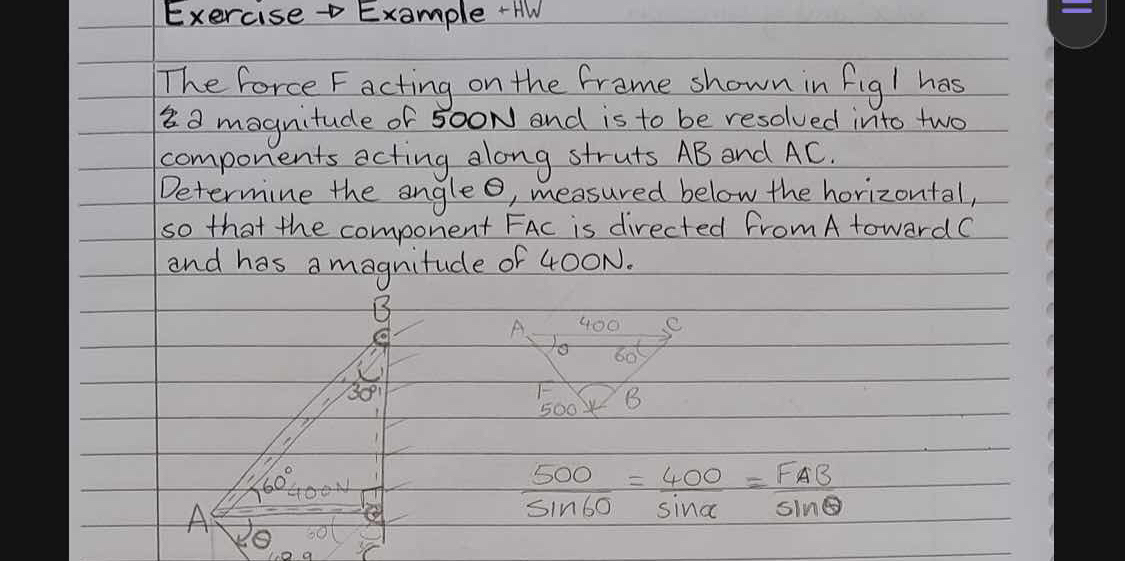 Exercise → Example + HW
The force F acting on the frame shown in fig 1 has
a magnitude of 500N and is to be resolved into two
components acting along struts AB and AC.
Determine the angle θ, measured below the horizontal,
so that the component FAC is directed from A toward C
and has a magnitude of 400N.
B
A 400 C
θ 60
30°
F
500 B
60° 400N
500 = 400 = FAB
sin60 sinα sinθ
A
θ 60
C